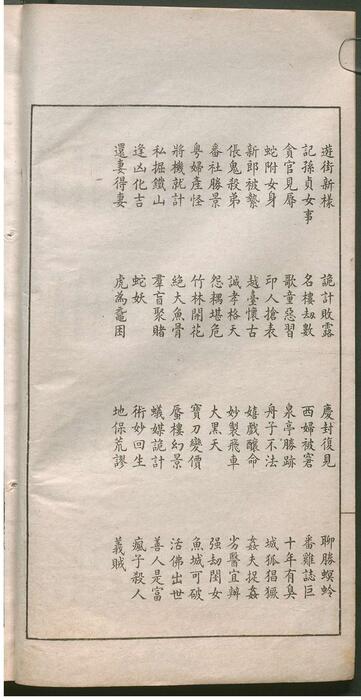 遊街新樣　詭計敗露　慶封復見　聊勝螟蛉
記孫貞女事　名樓劫數　西婦被窘　番雞誌巨
貪官見辱　歌童惡習　泉亭勝跡　十年有臭
蛇附女身　印人搶表　舟子不法　城狐猖獗
新郎被縶　越臺懷古　嬉戲釀命　姦夫捉姦
倀鬼殺弟　誠孝格天　妙製飛車　劣醫宜辨
番社勝景　怨耦堪危　大黑天　强劫閨女
粵婦產怪　竹林開花　寶刀變價　魚城可破
將機就計　絶大魚骨　蜃樓幻景　活佛出世
私掘鐵山　羣盲聚賭　蟻媒詭計　善人是富
逢凶化吉　蛇妖　術妙回生　瘋子殺人
還妻得妻　虎為鼋困　地保荒謬　義賊